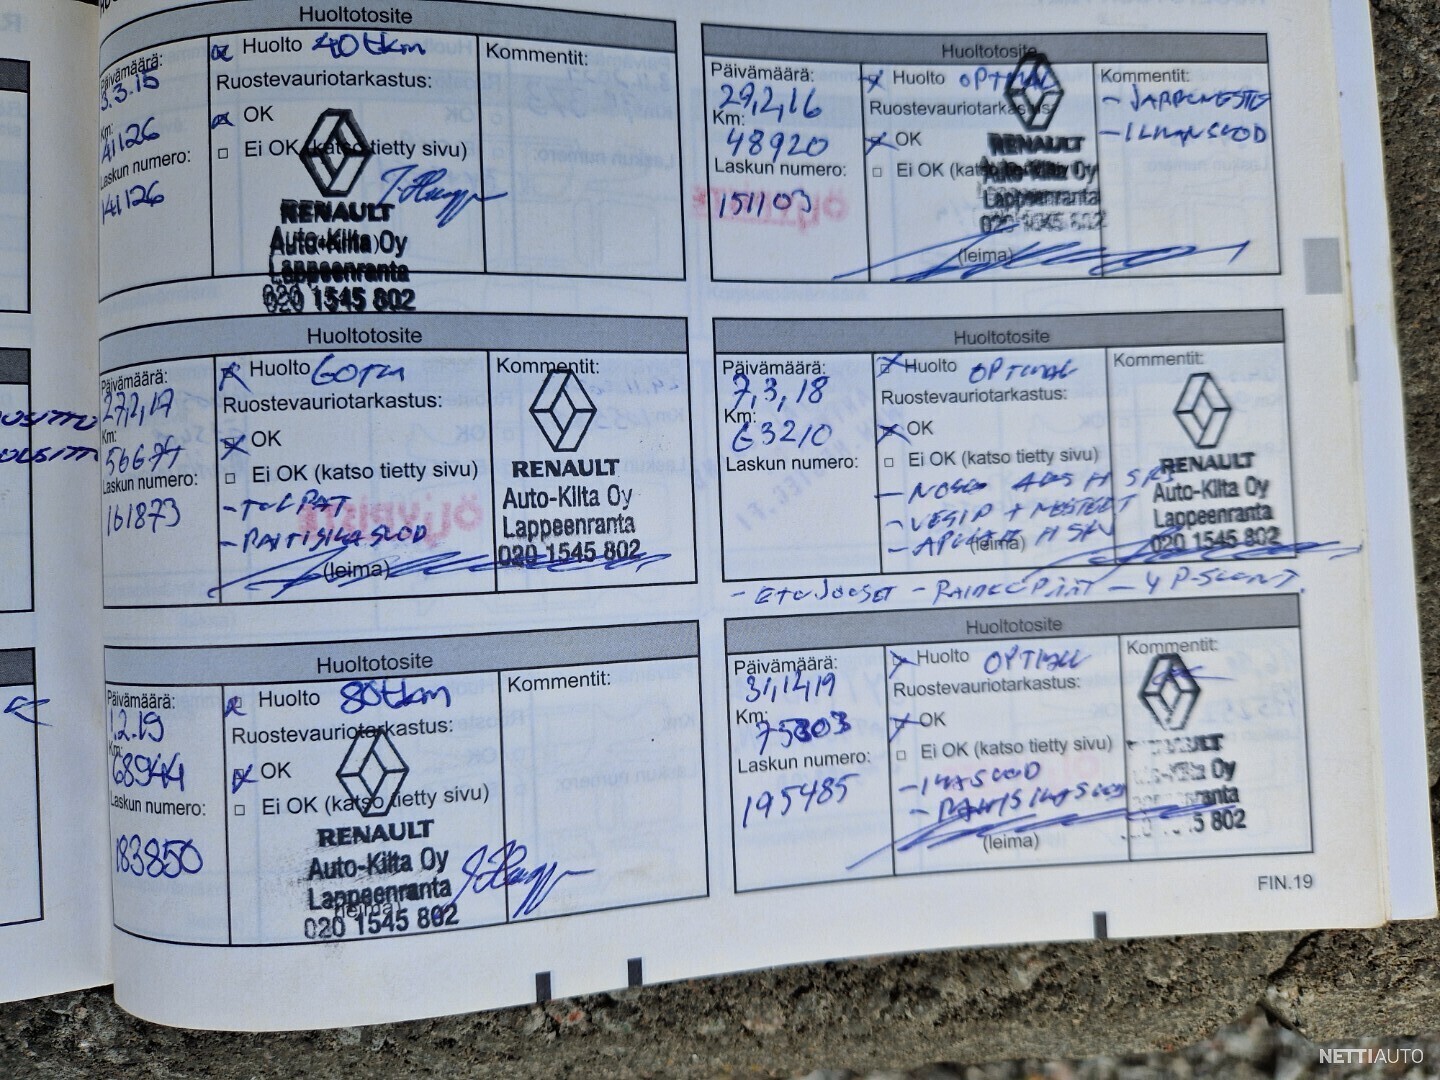 Huoltotosite
Päivämäärä:
3.3.15
Km:
41126
Laskun numero:
141126
Huolto 40tkm
Ruostevauriotarkastus:
OK
Ei OK (katso tietty sivu)
RENAULT
Auto-Kilta Oy
Lappeenranta
020 1545 802
Kommentit:
Huoltotosite
Päivämäärä:
29,2,16
Km:
48920
Laskun numero:
151103
Huolto OPTIMAL
Ruostevauriotarkastus:
OK
Ei OK (katso
RENAULT
Auto-Kilta Oy
Lappeenranta
020 1545 802
(leima)
Kommentit:
- JARRUNESTE
- ILMANSUOD
Huoltotosite
Päivämäärä:
27,2,17
Km:
56674
Laskun numero:
161873
Huolto 60TKM
Ruostevauriotarkastus:
OK
Ei OK (katso tietty sivu)
- TULPAT
- RAITISILMASUOD
(leima)
Kommentit:
RENAULT
Auto-Kilta Oy
Lappeenranta
020 1545 802
Huoltotosite
Päivämäärä:
7,3,18
Km:
63210
Laskun numero:
Huolto OPTIMAL
Ruostevauriotarkastus:
OK
Ei OK (katso tietty sivu)
(leima)
Kommentit:
RENAULT
Auto-Kilta Oy
Lappeenranta
020 1545 802
Huoltotosite
Päivämäärä:
1.2.19
Km:
68944
Laskun numero:
183850
Huolto 80tkm
Ruostevauriotarkastus:
OK
Ei OK (katso tietty sivu)
RENAULT
Auto-Kilta Oy
Lappeenranta
(leima)
020 1545 802
Kommentit:
Huoltotosite
Päivämäärä:
31,12,19
Km:
75803
Laskun numero:
195485
Huolto OPTIMAL
Ruostevauriotarkastus:
OK
Ei OK (katso tietty sivu)
- ILMASUOD
- RAITISILMASUOD
(leima)
Kommentit:
FIN.19
NETTIAUTO